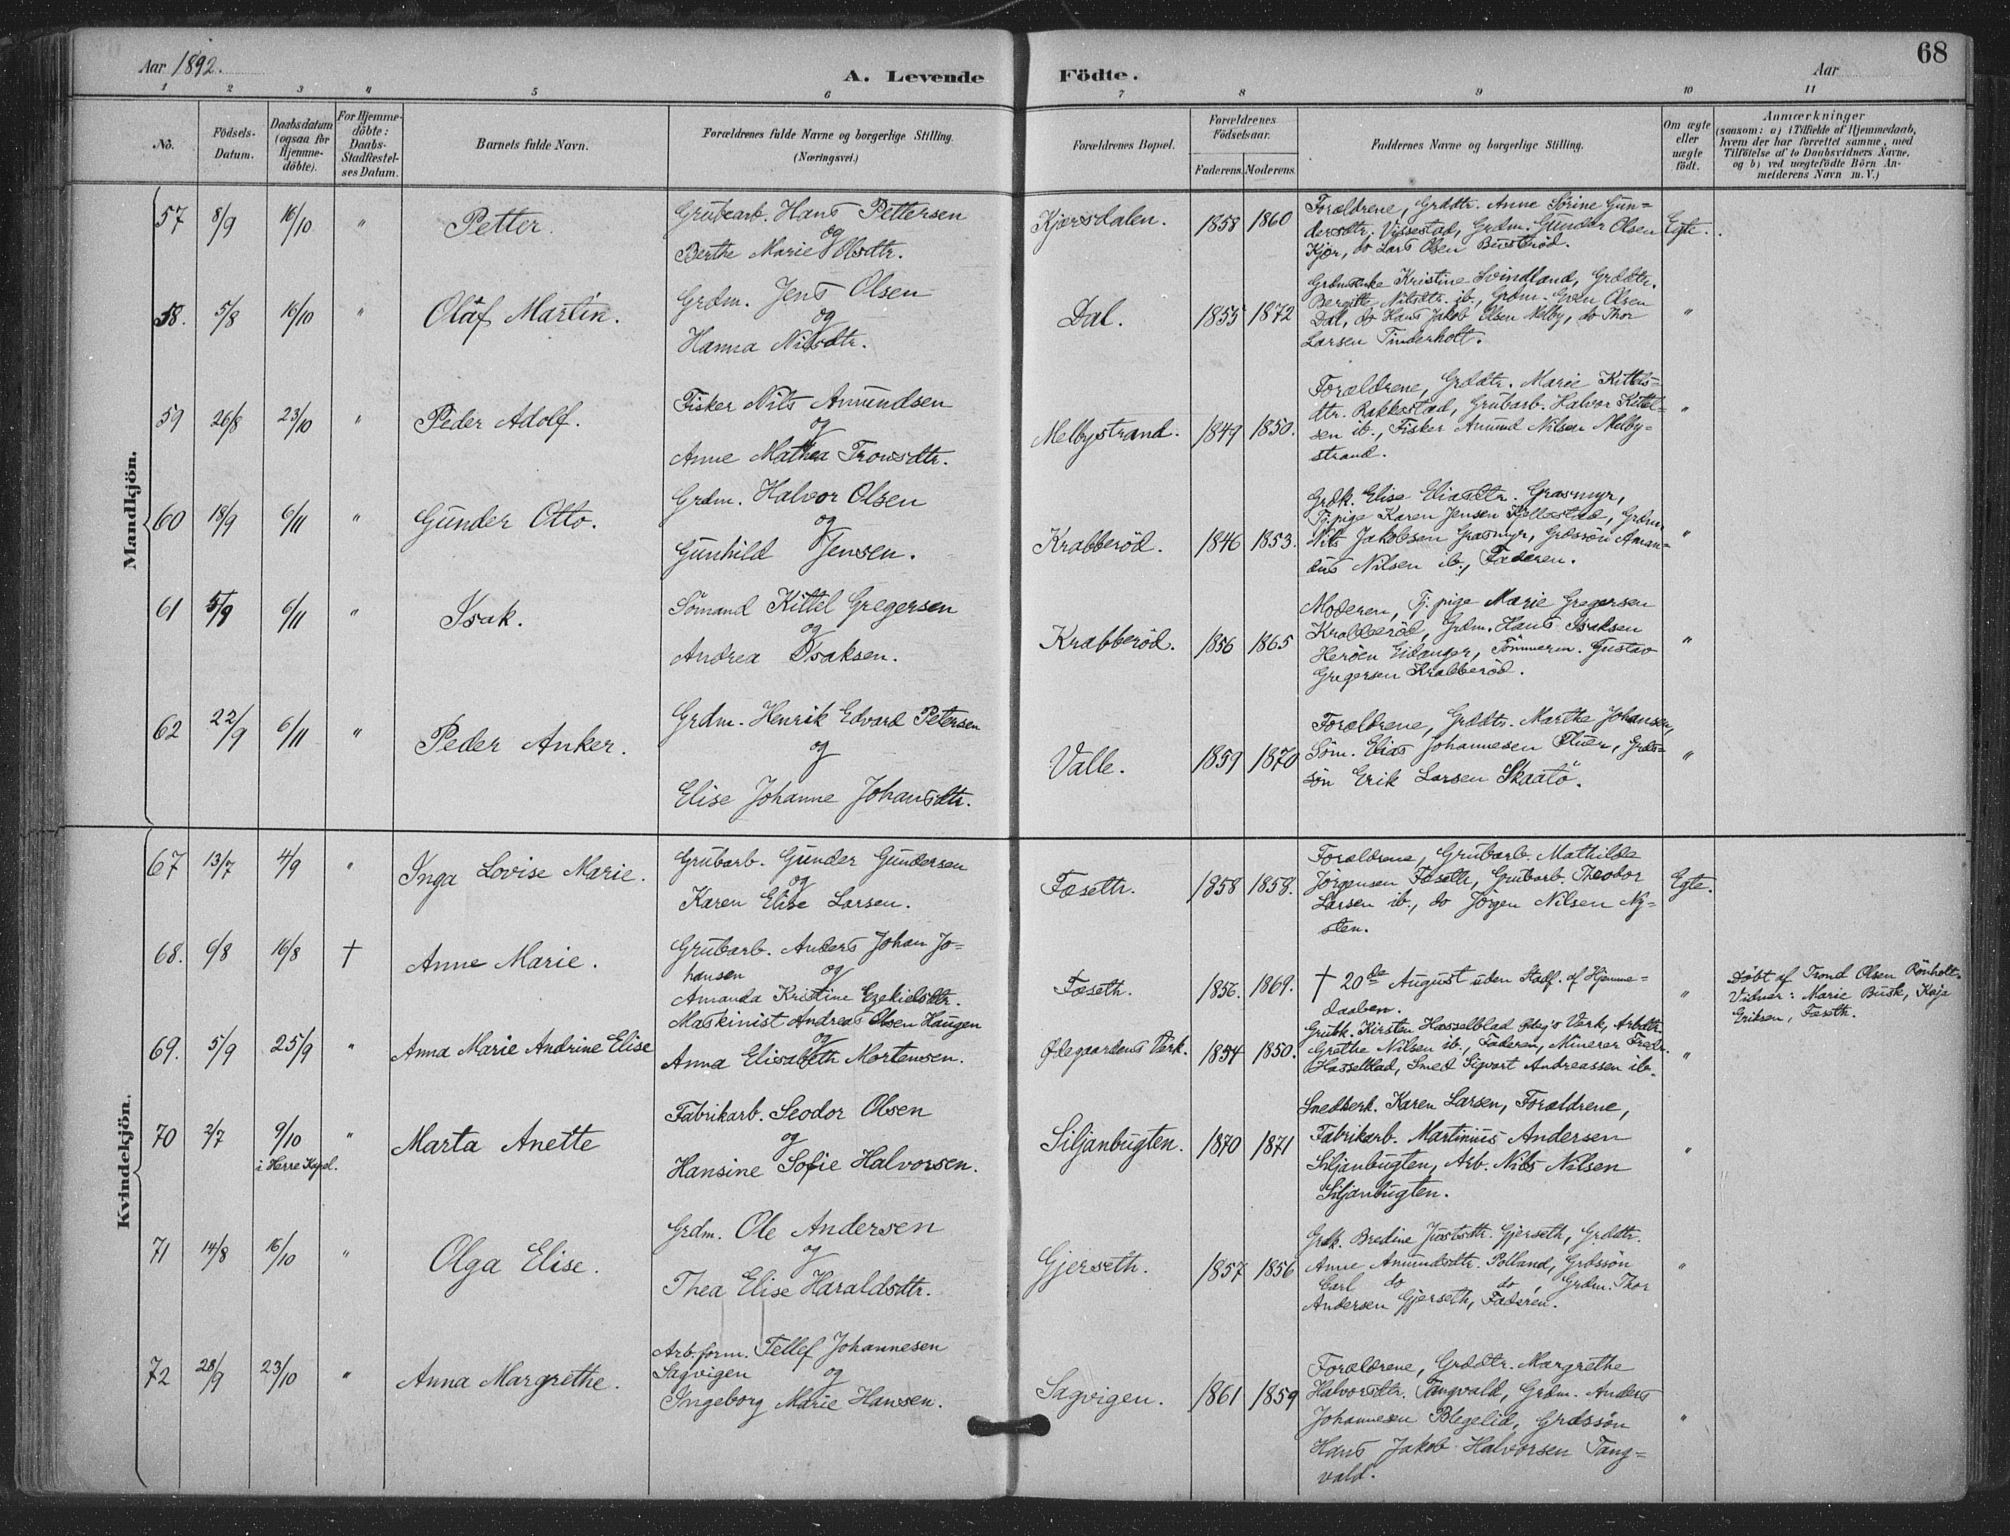 Aar 1892.
A. Levende Födte.
Aar
68
1 2 3 4 5 6 7 8 9 10 11
No.
Födsels-
Datum.
Daabsdatum
(ogsaa for
Hjemme-
döbte).
For Hjemme-
döbte:
Daabs-
Stadfæstel-
ses Datum.
Barnets fulde Navn.
Forældrenes fulde Navne og borgerlige Stilling.
(Næringsvei.)
Forældrenes Bopæl.
Forældrenes
Födselsaar.
Faderens. Moderens.
Faddernes Navne og borgerlige Stilling.
Om ægte
eller
uægte
født.
Anmærkninger
(saasom: a) i Tilfælde af Hjemmedaab,
hvem der har forrettet samme, med
Tilföielse af to Daabsvidners Navne,
og b) ved uægtefödte Börn An-
melderens Navn m. V.)
Mandkjön.
57 8/9 16/10 " Petter.
Grubearb. Hans Pettersen
og
Berthe Marie Olsdtr.
Kjørsdalen. 1858 1860
Forældrene, Grddtr. Anne Sørine Gun-
dersdtr. Vissestad, Grdm. Gunder Olsen
Kjør, do Lars Olsen Busterød.
Egte.
58. 5/8 16/10 " Olaf Martin.
Grdm. Jens Olsen
og
Hanna Nilsdtr.
Dal. 1853 1872
Grdmenke Kristine Svindland, Grddtr.
Bergitte Nilsdtr. ib., Grdm. Even Olsen
Dal, do Hans Jakob Olsen Melby, do Thor
Larsen Tinderholt.
"
59 26/8 23/10 " Peder Adolf.
Fisker Nils Amundsen
og
Anne Mathea Tronsdtr.
Melbystrand. 1849 1850.
Forældrene, Grddtr. Marie Kittels-
dtr. Rakkestad, Grubarb. Halvor Kittel-
sen ib., Fisker Amund Nilsen Melby-
strand.
"
60 18/9 6/11 " Gunder Otto.
Grdm. Halvor Olsen
og
Gunhild Jensen.
Krabberød. 1846 1853.
Grdk. Elise Eliasdtr. Grasmyr,
Tj.pige Karen Jensen Fjellestad, Grdm.
Nils Jakobsen Grasmyr, Grdssøn Aman-
dus Nilsen ib., Faderen.
"
61 5/9 6/11 " Isak.
Sömand Kittel Gregersen
og
Andrea Isaksen.
Krabberød. 1856 1865
Moderen, Tj.pige Marie Gregersen
Krabberød, Grdm. Hans Isaksen
Herøen Eidanger, Tömmerm. Gustav
Gregersen Krabberød.
"
62 22/9 6/11 " Peder Anker.
Grdm. Henrik Edvard Petersen
og
Elise Johanne Johansdtr.
Valle. 1859 1870
Forældrene, Grddtr. Marthe Johansen,
Söm. Elias Johannesen Fluer, Grds-
søn Erik Larsen Skaatö.
"
Kvindekjön.
67 13/7 4/9 " Inga Lovise Marie.
Grubarb. Gunder Gundersen
og
Karen Elise Larsen.
Fæsetr. 1858 1858.
Forældrene, Grubarb. Mathilde
Jörgensen Fæsetr, Grubarb. Theodor
Larsen ib., do Jörgen Nilsen Ny-
sten.
Egte.
68. 6/8 16/8 † Anne Marie.
Grubarb. Anders Johan Jo-
hansen og
Amanda Kristine Ezekielsdtr.
Fæseth. 1856. 1869.
† 20de August uden Stadf. af Hjemme-
daaben.
"
Døbt af Trond Olsen Rönholt.
Vidner: Marie Busk, Kaja
Eriksen, Fæseth.
69. 5/9 25/9 " Anna Marie Andrine Elise
Maskinist Andreas Olsen Haugen
og
Anna Elisabeth Mortensen.
Ødegaardens Værk. 1854 1850.
Grubk. Kirsten Hasselblad Ødeg's Værk, Arbdtr.
Grethe Nilsen ib., Faderen, Minerer Fredr.
Hasselblad, Smed Sigvart Andreassen ib.
"
70 2/7 9/10 " Marta Anette
i Herre Kapel.
Fabrikarb. Seodor Olsen
og
Hansine Sofie Halvorsen.
Siljanbugten. 1870 1871
Snedkerk. Karen Larsen, Forældrene,
Fabrikarb. Martinius Andersen
Siljanbugten, Arb. Nils Nilsen
Siljanbugten.
"
71 14/8 16/10 " Olga Elise.
Grdm. Ole Andersen
og
Thea Elise Haraldsdtr.
Gjerseth. 1857 1856
Grdk. Bredine Justsdtr. Gjerseth, Grddtr.
Anne Amundsdtr. Polland, Grdssøn
Carl do do, Grdm. Thor
Andersen Gjerseth, Faderen.
"
72 28/9 23/10 " Anna Margrethe.
Arb.form. Tellef Johannesen
Sagvigen og
Ingeborg Marie Hansen.
Sagvigen. 1861 1859
Forældrene, Grddtr. Margrethe
Halvorsdtr. Tangvald, Grdm. Anders
Johannesen Blegelid, Grdssøn
Hans Jakob Halvorsen Tang-
vald.
"